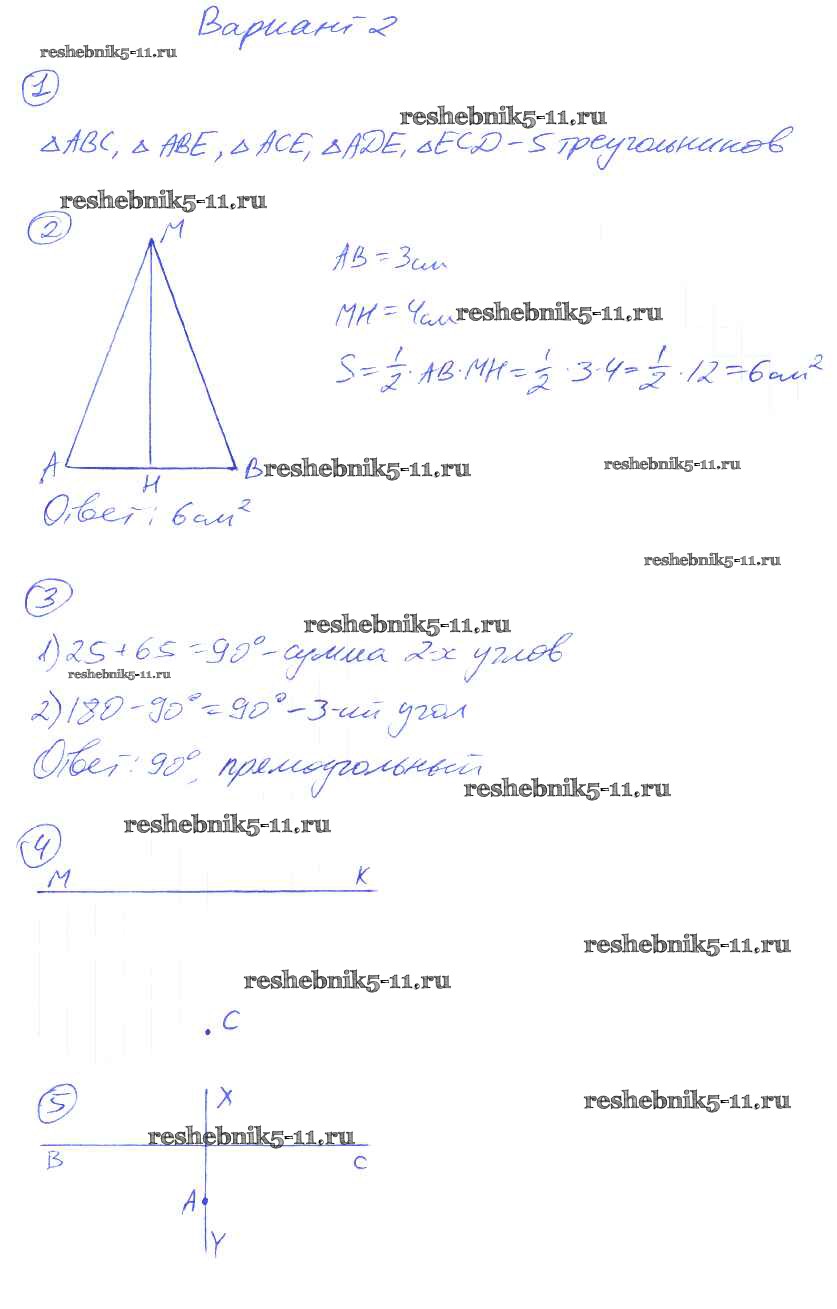 Вариант 2
reshebnik5-11.ru
1
reshebnik5-11.ru
△ABC, △ABE, △ACE, △ADE, △ECD - 5 треугольников
reshebnik5-11.ru
2
M
AB = 3см
MH = 4см
reshebnik5-11.ru
S = 1/2 · AB · MH = 1/2 · 3 · 4 = 1/2 · 12 = 6см²
A
H
B
reshebnik5-11.ru
reshebnik5-11.ru
Ответ: 6см²
reshebnik5-11.ru
3
reshebnik5-11.ru
1) 25 + 65 = 90° - сумма 2-х углов
reshebnik5-11.ru
2) 180 - 90° = 90° - 3-ий угол
Ответ: 90°, прямоугольный
reshebnik5-11.ru
reshebnik5-11.ru
4
M K
reshebnik5-11.ru
reshebnik5-11.ru
C
5
X
reshebnik5-11.ru
reshebnik5-11.ru
B C
A
Y